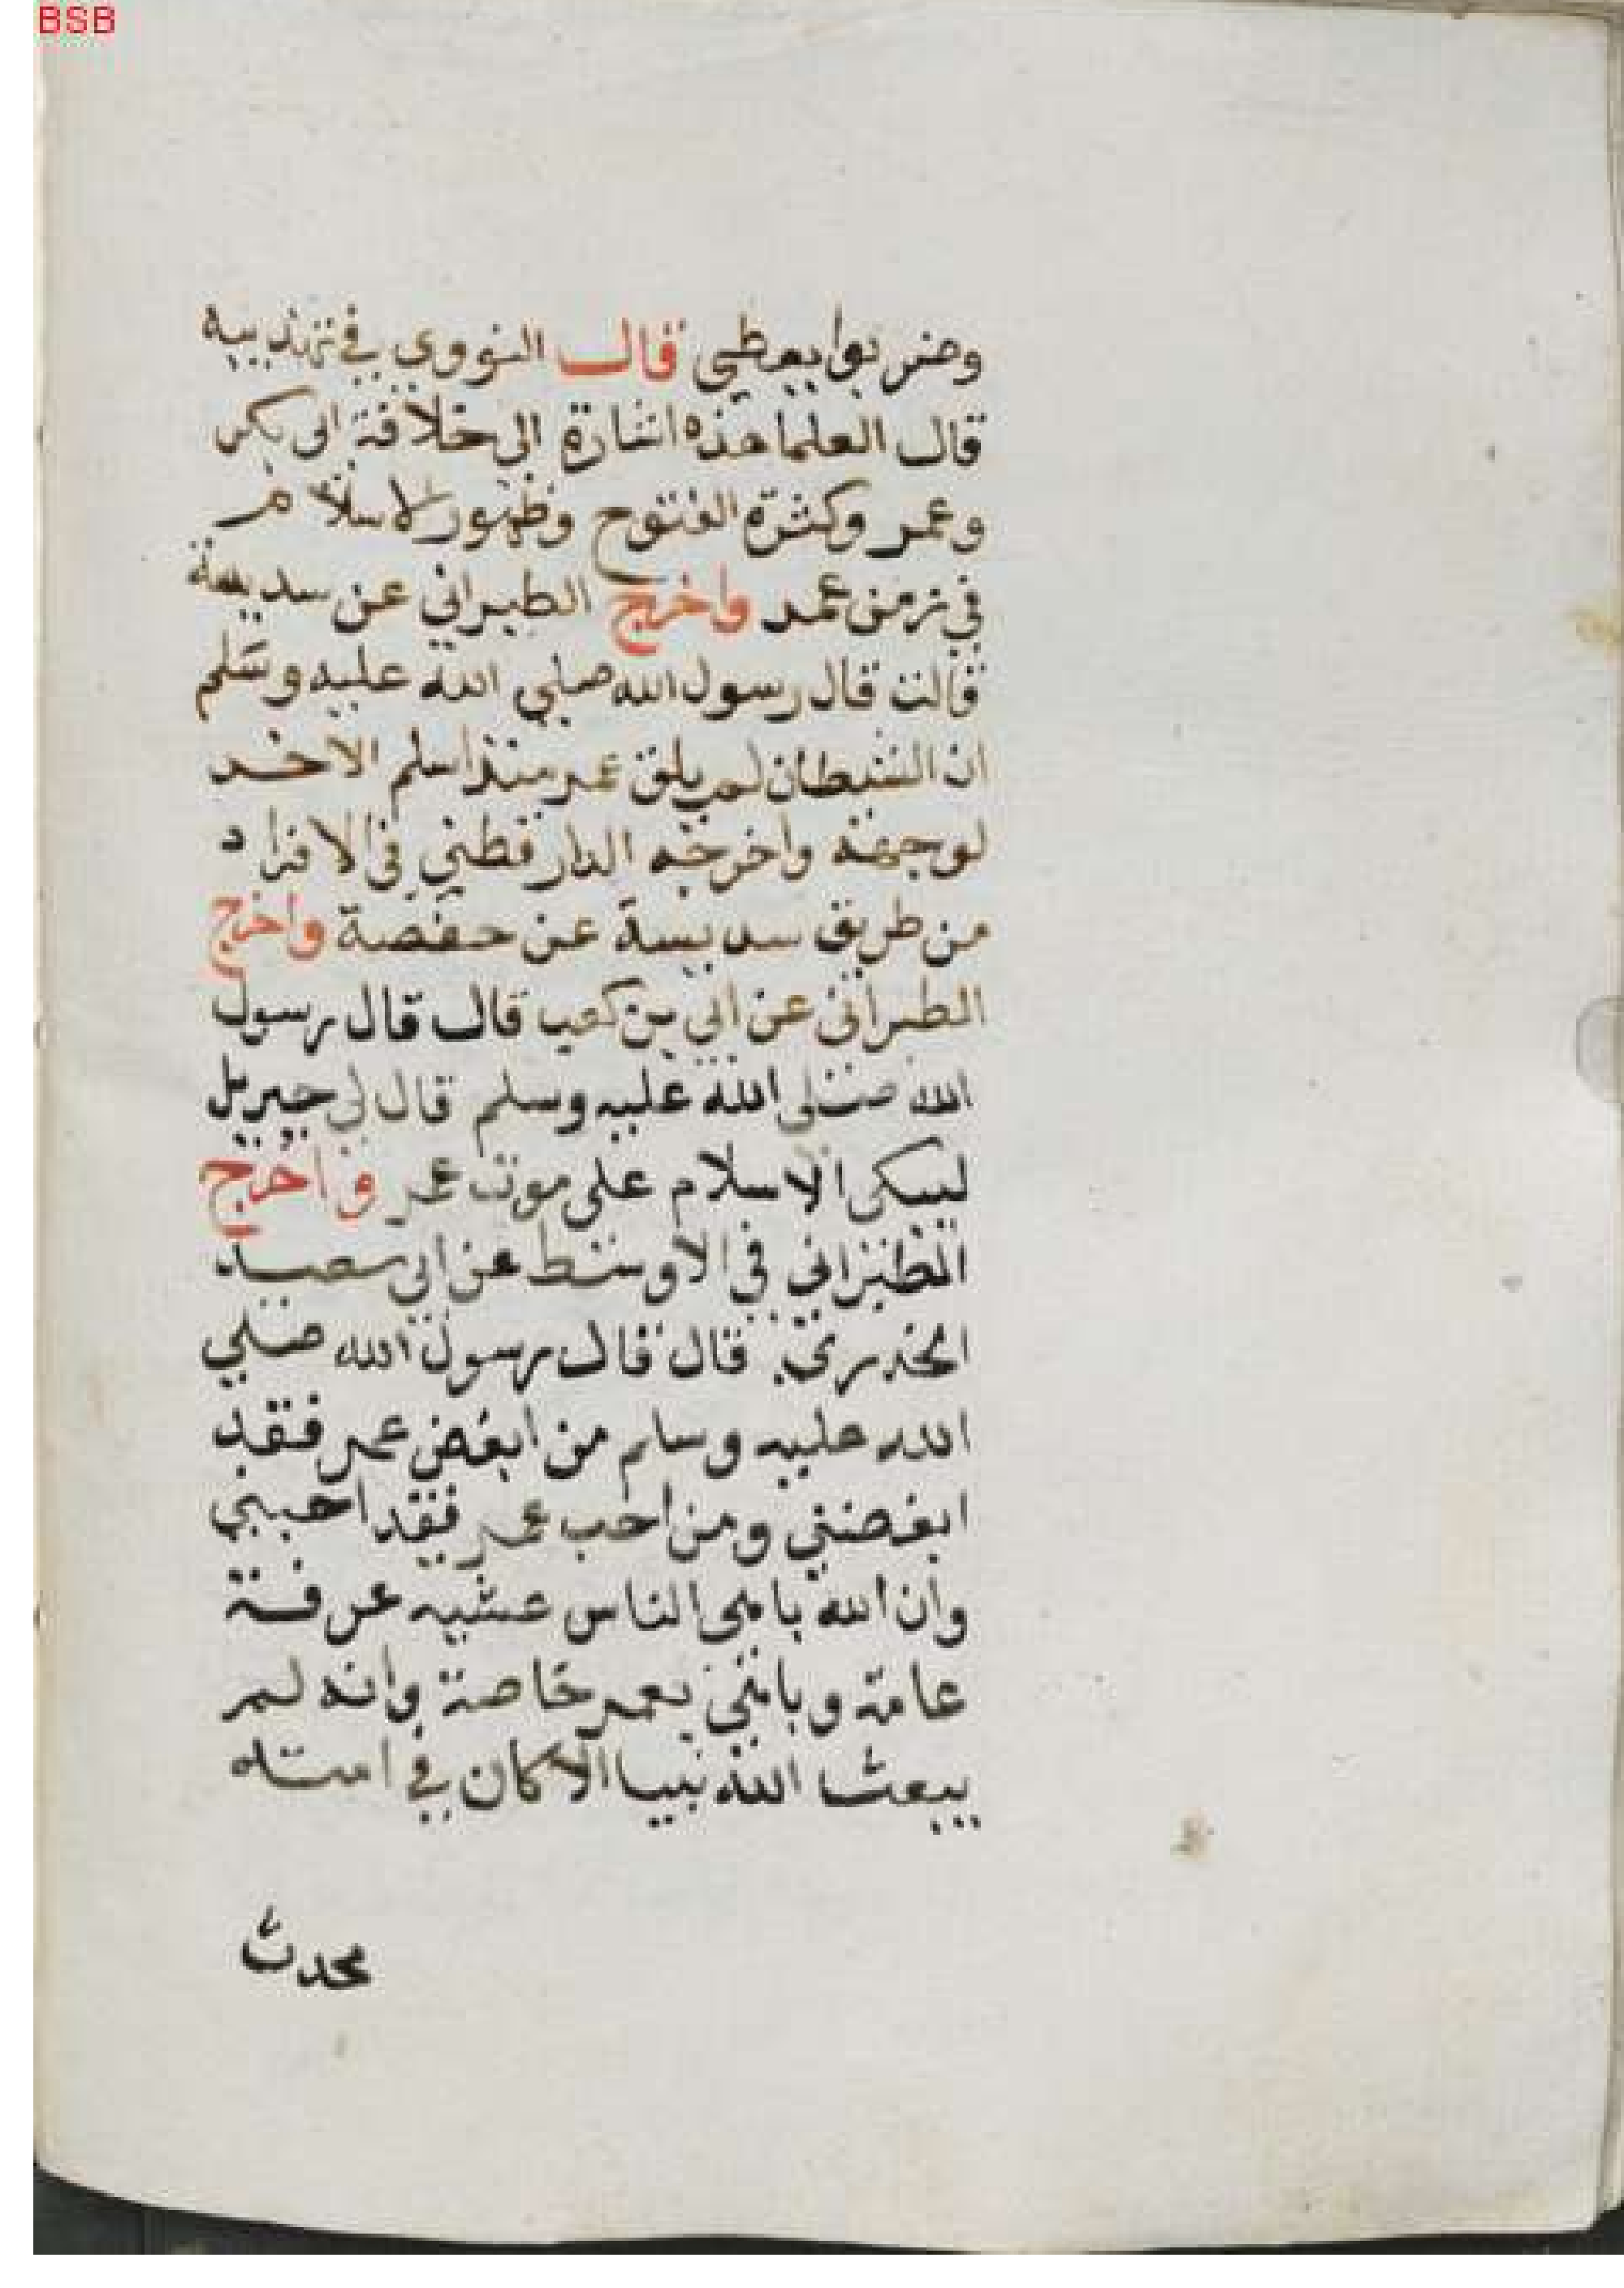 BSB
وضربوا بعطن قال النووي في تهذيبه
قال العلما هذه اشارة الى خلافة ابى بكر
وعمر وكثرة الفتوح وظهور الاسلام
في زمن عمر واخرج الطبراني عن سديسة
قالت قال رسول الله صلي الله عليه وسلم
ان الشيطان لم يلق عمر منذ اسلم الا خر
لوجهه واخرجه الدارقطني في الافراد
من طريق سديسة عن حفصة واخرج
الطبراني عن ابي بن كعب قال قال رسول
الله صلى الله عليه وسلم قال لي جبريل
ليبكى الاسلام على موت عمر واخرج
الطبراني في الاوسط عن ابي سعيد
الخدري قال قال رسول الله صلي
الله عليه وسلم من ابغض عمر فقد
ابغضني ومن احب عمر فقد احبني
وان الله باهى الناس عشيه عرفة
عامة وباهي بعمر خاصة وانه لم
يبعث الله نبيا الا كان في امته
محدث